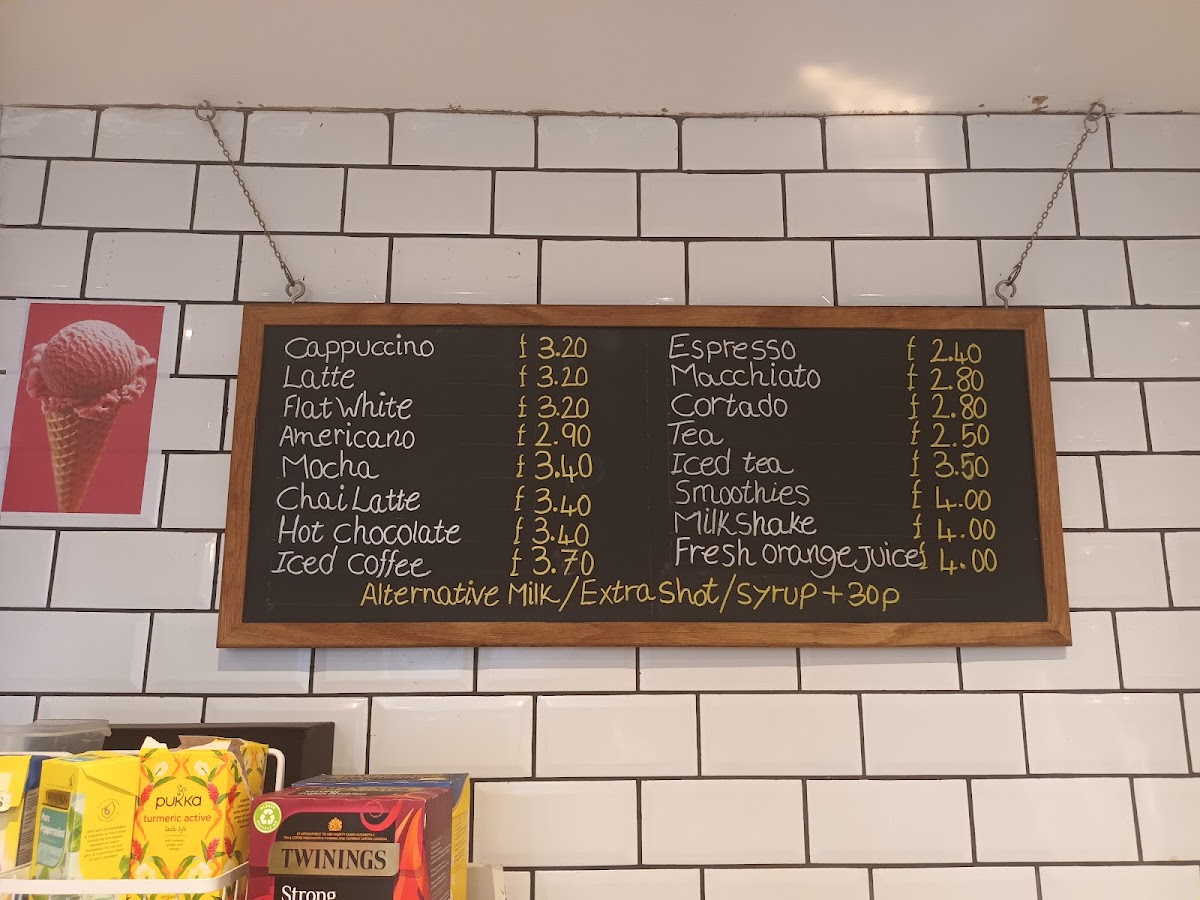 Cappuccino £ 3.20
Latte £ 3.20
Flat White £ 3.20
Americano £ 2.90
Mocha £ 3.40
Chai Latte £ 3.40
Hot Chocolate £ 3.40
Iced Coffee £ 3.70
Espresso £ 2.40
Macchiato £ 2.80
Cortado £ 2.80
Tea £ 2.50
Iced tea £ 3.50
Smoothies £ 4.00
Milkshake £ 4.00
Fresh orange Juice £ 4.00
Alternative Milk/Extra Shot/Syrup + 30p
TWININGS
Peppermint
pukka
turmeric active
TWININGS
Strong